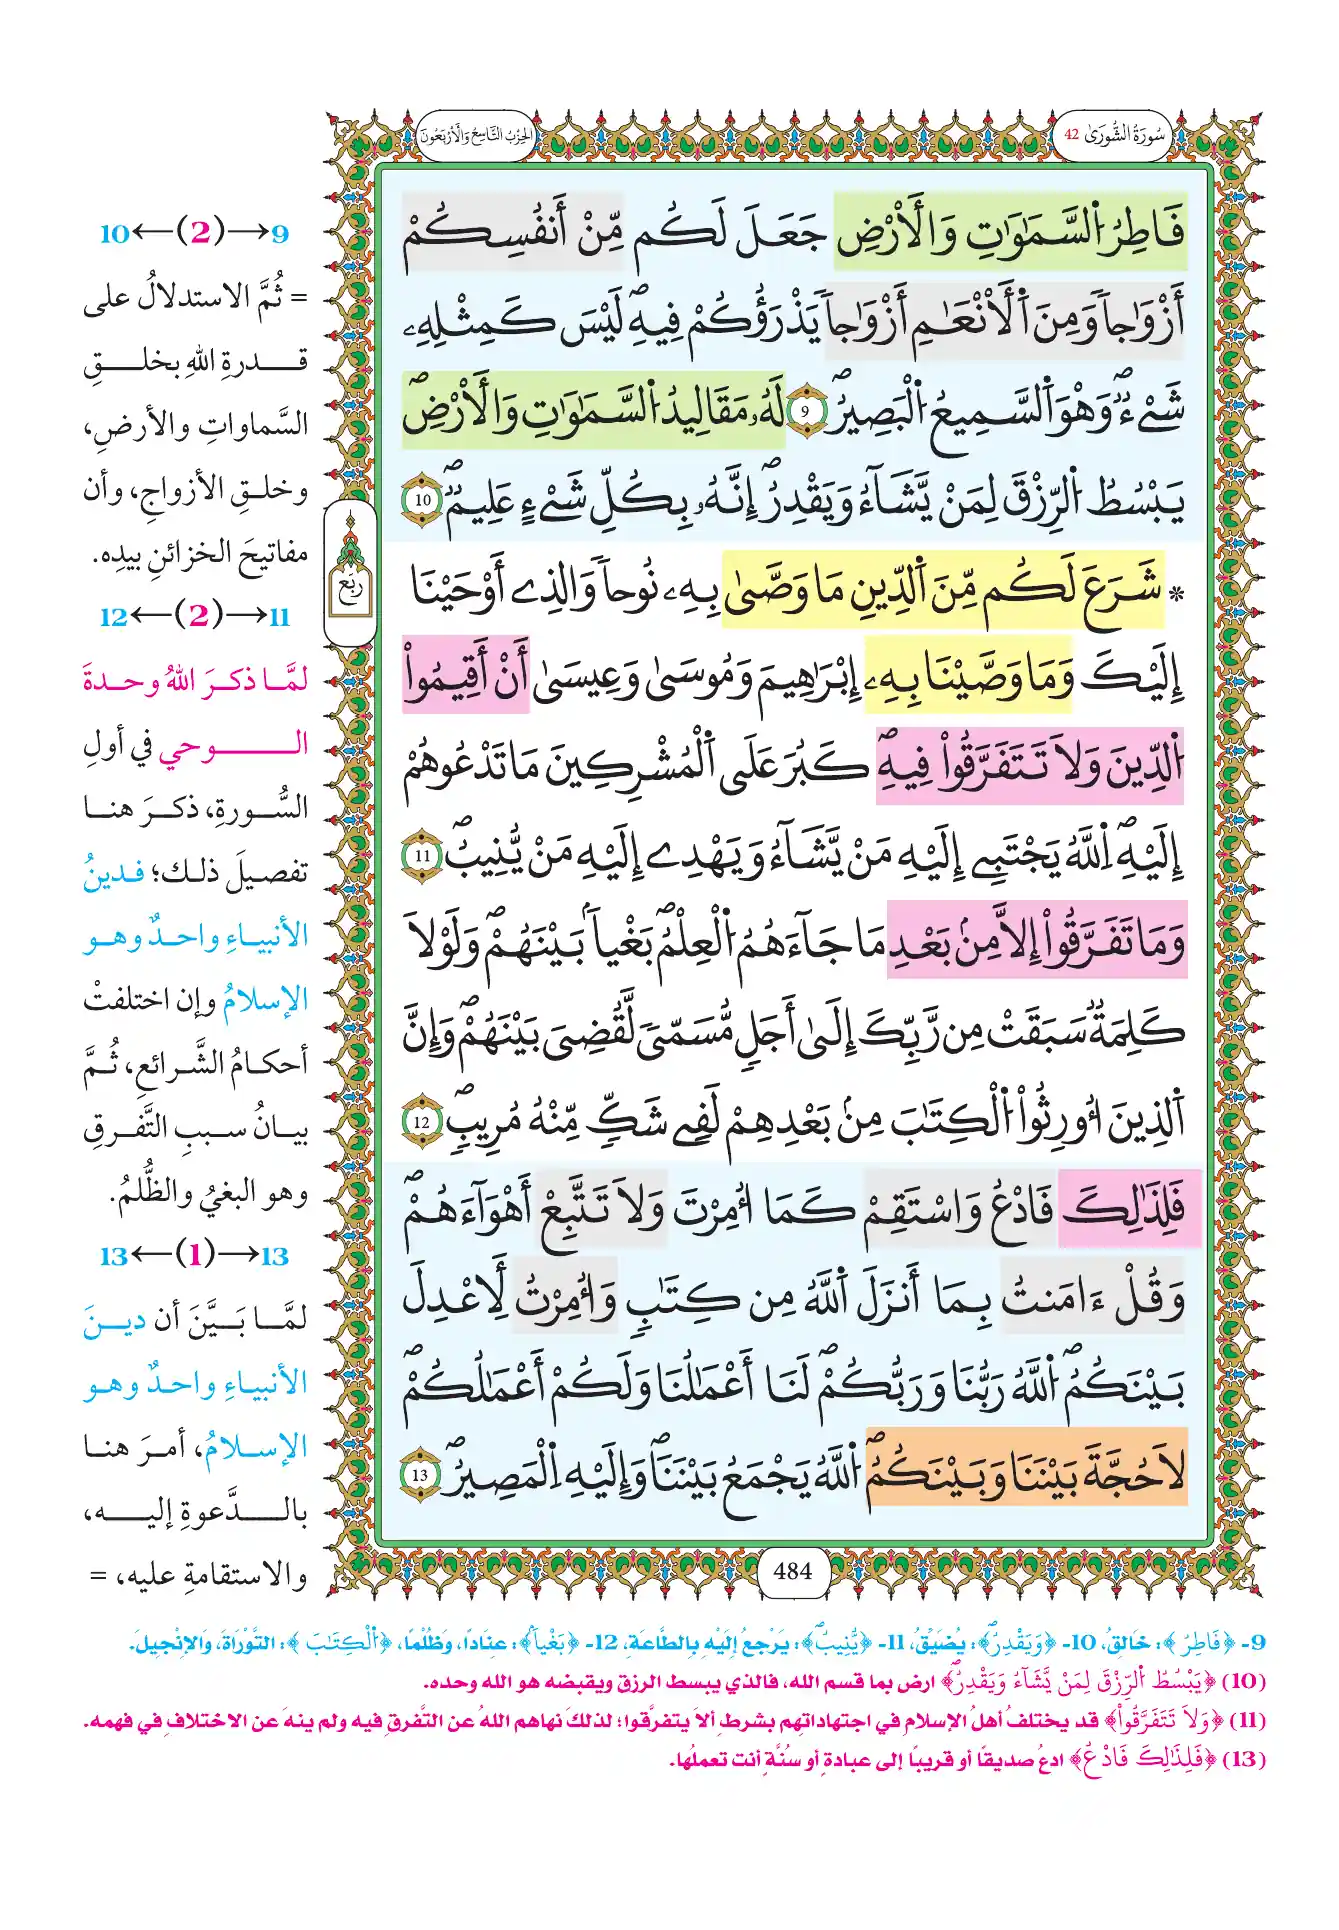 سُورَةُ الشُّورَىٰ 42
الحِزْبُ التَّاسِعُ وَالْأَرْبَعُونَ
فَاطِرُ اُ۬لسَّمَٰوَٰتِ وَالَارْضِ جَعَلَ لَكُم مِّنَ اَنفُسِكُمُۥٓ
أَزْوَٰجاٗ وَمِنَ اَ۬لَانْعَٰمِ أَزْوَٰجاٗ يَذْرَؤُكُمْ فِيهِۖ لَيْسَ كَمِثْلِهِۦ
شَےْءٞۖ وَهُوَ اَ۬لسَّمِيعُ اُ۬لْبَصِيرُۖ 9 لَهُۥ مَقَالِيدُ اُ۬لسَّمَٰوَٰتِ وَالَارْضِۖ
يَبْسُطُ اُ۬لرِّزْقَ لِمَنْ يَّشَآءُ وَيَقْدِرُۖ إِنَّهُۥ بِكُلِّ شَےْءٍ عَلِيمٞۖ 10
* شَرَعَ لَكُم مِّنَ اَ۬لدِّينِ مَا وَصَّىٰ بِهِۦ نُوحاٗ وَالذِےٓ أَوْحَيْنَا
إِلَيْكَ وَمَا وَصَّيْنَا بِهِۦٓ إِبْرَٰهِيمَ وَمُوسَىٰ وَعِيسَىٰٓ أَنَ اَقِيمُواْ
اُ۬لدِّينَ وَلَا تَتَفَرَّقُواْ فِيهِۖ كَبُرَ عَلَى اَ۬لْمُشْرِكِينَ مَا تَدْعُوهُمُۥٓ
إِلَيْهِۖ اِ۬للَّهُ يَجْتَبِےٓ إِلَيْهِ مَنْ يَّشَآءُ وَيَهْدِےٓ إِلَيْهِ مَنْ يُّنِيبُۖ 11
وَمَا تَفَرَّقُوٓاْ إِلَّا مِنۢ بَعْدِ مَا جَآءَهُمُ اُ۬لْعِلْمُۖ بَغْياَۢ بَيْنَهُمْۖ وَلَوْلَا
كَلِمَةٞ سَبَقَتْ مِن رَّبِّكَ إِلَىٰٓ أَجَلٖ مُّسَمّىٗ لَّقُضِيَ بَيْنَهُمْۖ وَإِنَّ
اَ۬لذِينَ أُورِثُواْ اُ۬لْكِتَٰبَ مِنۢ بَعْدِهِمْ لَفِے شَكّٖ مِّنْهُ مُرِيبٖۖ 12
فَلِذَٰلِكَ فَادْعُ وَاسْتَقِمْ كَمَآ أُمِرْتَ وَلَا تَتَّبِعَ اَهْوَآءَهُمْۖ
وَقُلَ اٰمَنتُ بِمَآ أَنزَلَ اَ۬للَّهُ مِن كِتَٰبٖ وَأُمِرْتُ لِأَعْدِلَ
بَيْنَكُمُۖ اُ۬للَّهُ رَبُّنَا وَرَبُّكُمْۖ لَنَآ أَعْمَٰلُنَا وَلَكُمُۥٓ أَعْمَٰلُكُمْۖ
لَا حُجَّةَ بَيْنَنَا وَبَيْنَكُمُۖ اُ۬للَّهُ يَجْمَعُ بَيْنَنَاۖ وَإِلَيْهِ اِ۬لْمَصِيرُۖ 13
رُبْع
484
9→(2)←10
= ثُمَّ الاستدلالُ على
قدرةِ اللهِ بخلقِ
السَّماواتِ والأرضِ،
وخلقِ الأزواجِ، وأن
مفاتيحَ الخزائنِ بيدِه.
11→(2)←12
لمَّا ذكرَ اللهُ وحدةَ
الوحي في أولِ
السُّورةِ، ذكرَ هنا
تفصيلَ ذلك؛ فدينُ
الأنبياءِ واحدٌ وهو
الإسلامُ وإن اختلفتْ
أحكامُ الشَّرائعِ، ثُمَّ
بيانُ سببِ التَّفرقِ
وهو البغيُ والظُّلمُ.
13→(1)←13
لمَّا بَيَّنَ أن دينَ
الأنبياءِ واحدٌ وهو
الإسلامُ، أمرَ هنا
بالدَّعوةِ إليه،
والاستقامةِ عليه، =
9- ﴿فَاطِرُ﴾: خَالِقُ، 10- ﴿وَيَقْدِرُۖ﴾: يُضَيِّقُ، 11- ﴿يُّنِيبُۖ﴾: يَرْجِعُ إِلَيْهِ بِالطَّاعَةِ، 12- ﴿بَغْياَۢ﴾: عِنَادًا، وَظُلْمًا، ﴿اُ۬لْكِتَٰبَ﴾: التَّوْرَاةَ، وَالإِنْجِيلَ.
(10) ﴿يَبْسُطُ اُ۬لرِّزْقَ لِمَنْ يَّشَآءُ وَيَقْدِرُۖ﴾ ارض بما قسم الله، فالذي يبسط الرزق ويقبضه هو الله وحده.
(11) ﴿وَلَا تَتَفَرَّقُواْ﴾ قد يختلفُ أهلُ الإسلامِ في اجتهاداتِهم بشرطِ ألا يتفرقُوا؛ لذلكَ نهاهم اللهُ عن التَّفرقِ فيه ولم ينهَ عن الاختلافِ في فهمِه.
(13) ﴿فَلِذَٰلِكَ فَادْعُ﴾ ادعُ صديقًا أو قريبًا إلى عبادةٍ أو سُنَّةٍ أنت تعملُها.